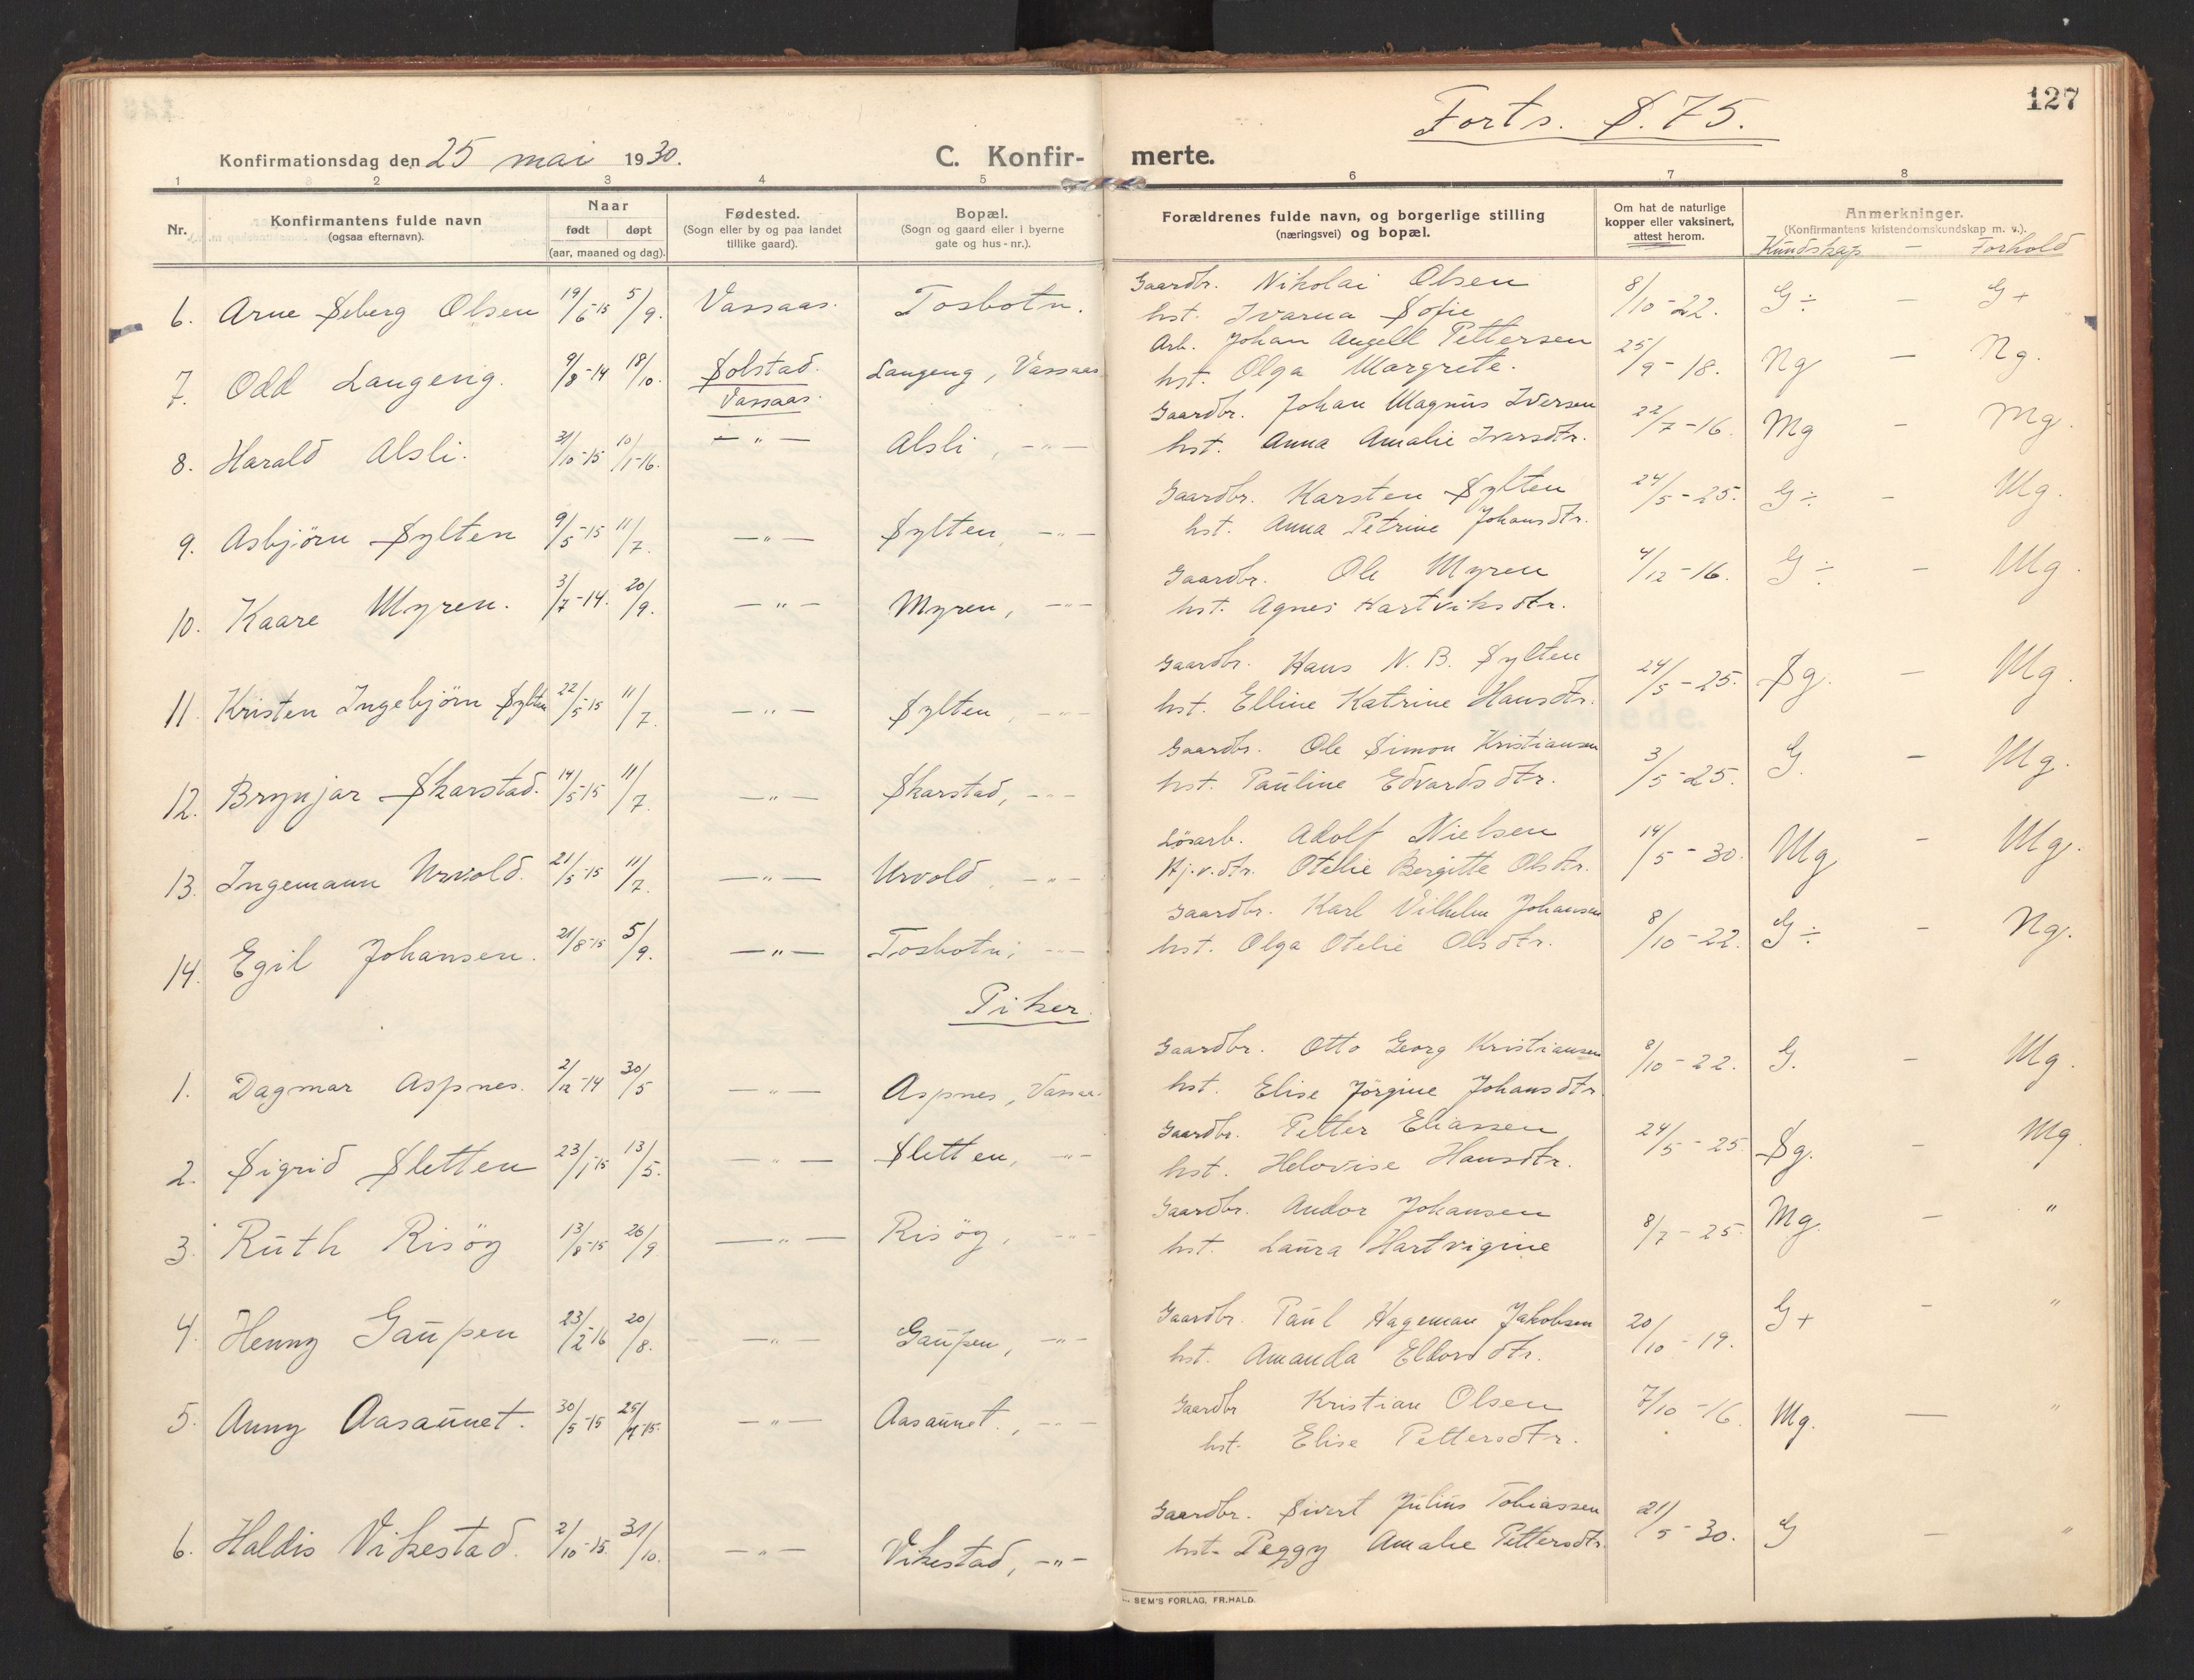 127
Forts. S. 75.
Konfirmationsdag den 25 mai 1930. C. Konfir- merte.
1 2 3 4 5 6 7 8
Nr. Konfirmantens fulde navn (ogsaa efternavn). Naar født døpt (aar, maaned og dag). Fødested. (Sogn eller by og paa landet tillike gaard). Bopæl. (Sogn og gaard eller i byerne gate og hus-nr.). Forældrenes fulde navn, og borgerlige stilling (næringsvei) og bopæl. Om hat de naturlige kopper eller vaksinert, attest herom. Anmerkninger. (Konfirmantens kristendomskundskap m. v.).
Kundskap — Forhold
6. Arne Seberg Olsen 19/6-15 5/9. Vassaas. Tosbotn. Gaardbr. Nikolai Olsen 8/10-22. G÷ — G+
hst. Ivarna Sofie
7. Odd Langeng. 9/8-14 18/10. Solstad. Langeng, Vassaas Arb. Johan Angell Pettersen 25/9-18. Ng — Ng.
Vassaas. hst. Olga Margrete.
8. Harald Alsli. 31/10-15 10/1-16. — " — Alsli, — " — Gaardbr. Johan Magnus Iversen 22/7-16. Mg — Mg.
hst. Anna Amalie Iversdtr.
9. Asbjörn Sylten 9/5-15 11/7. — " — Sylten, — " — Gaardbr. Karsten Sylten 24/5-25. G÷ — Mg.
hst. Anna Petrine Johansdtr.
10. Kaare Myren. 3/7-14. 20/9. — " — Myren, — " — Gaardbr. Ole Myren 4/12-16. G÷ — Mg.
hst. Agnes Hartviksdtr.
11. Kristen Ingebjörn Sylten 22/5-15 11/7. — " — Sylten, — " — Gaardbr. Hans N. B. Sylten 24/5-25. Sg. — Mg.
hst. Elline Katrine Hansdtr.
12. Brynjar Skarstad. 14/5-15 11/7. — " — Skarstad, — " — Gaardbr. Ole Simon Kristiansen 3/5-25. G. — Mg.
hst. Pauline Edvardsdtr.
13. Ingemann Urvold. 21/5-15 11/7. — " — Urvold, — " — Lösarb. Adolf Nielsen 14/5-30. Mg — Mg.
Hj.v.dtr. Otelie Bergitte Olsdtr.
14. Egil Johansen. 21/8-15 5/9. — " — Tosbotn, — " — Gaardbr. Karl Vilhelm Johansen 8/10-22. G÷ — Ng.
hst. Olga Otelie Olsdtr.
Piker.
1. Dagmar Aspnes. 2/12-14 30/5 — " — Aspnes, Vassaas Gaardbr. Otto Georg Kristiansen 8/10-22. G. — Mg.
hst. Elise Jörgine Johansdtr.
2. Sigrid Sletten 23/1-15 13/5. — " — Sletten, — " — Gaardbr. Petter Eliassen 24/5-25 Sg. — Mg.
hst. Helovise Hansdtr.
3. Ruth Risöy 13/8-15 26/9. — " — Risöy, — " — Gaardbr. Andor Johansen 8/7-25. Mg. — "
hst. Laura Hartvigine
4. Henny Gaupen 23/2-16 20/8. — " — Gaupen, — " — Gaardbr. Paul Hageman Jakobsen 20/10-19. G+ — "
hst. Amanda
5. Anny Aasaunet. 30/5-15 25/7-15. — " — Aasaunet., — " — Gaardbr Kristian Olsen 7/10-16. Mg. — "
hst. Elise Pettersdtr.
6. Haldis Vikestad. 2/10-15. 31/10. — " — Vikestad, — " — Gaardbr. Sivert Julius Tobiassen 21/5-30. G — "
hst. Peggy Amalie Pettersdtr.
SEM'S FORLAG, FR.HALD.